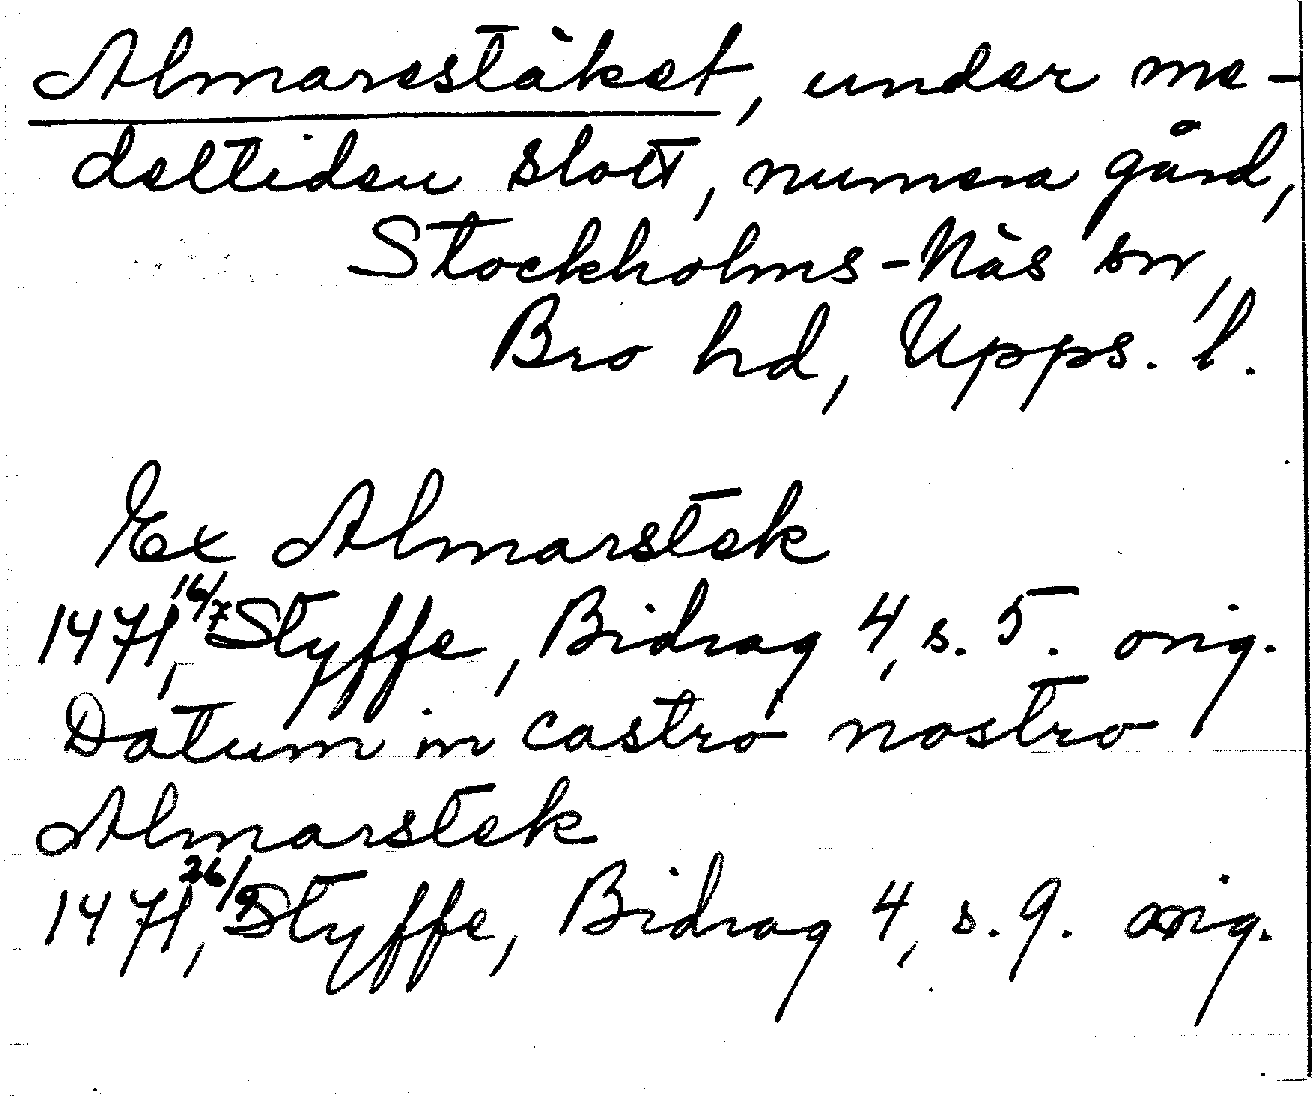 Almarestäket, under me-
deltiden slott, numera gård,
Stockholms-Näs sn,
Bro hd, Upps. l.
Ex Almarstek
1471, 16/7 Styffe, Bidrag 4, s. 5. orig.
Datum in castro nostro
Almarstek
1471, 26/9 Styffe, Bidrag 4, s. 9. orig.